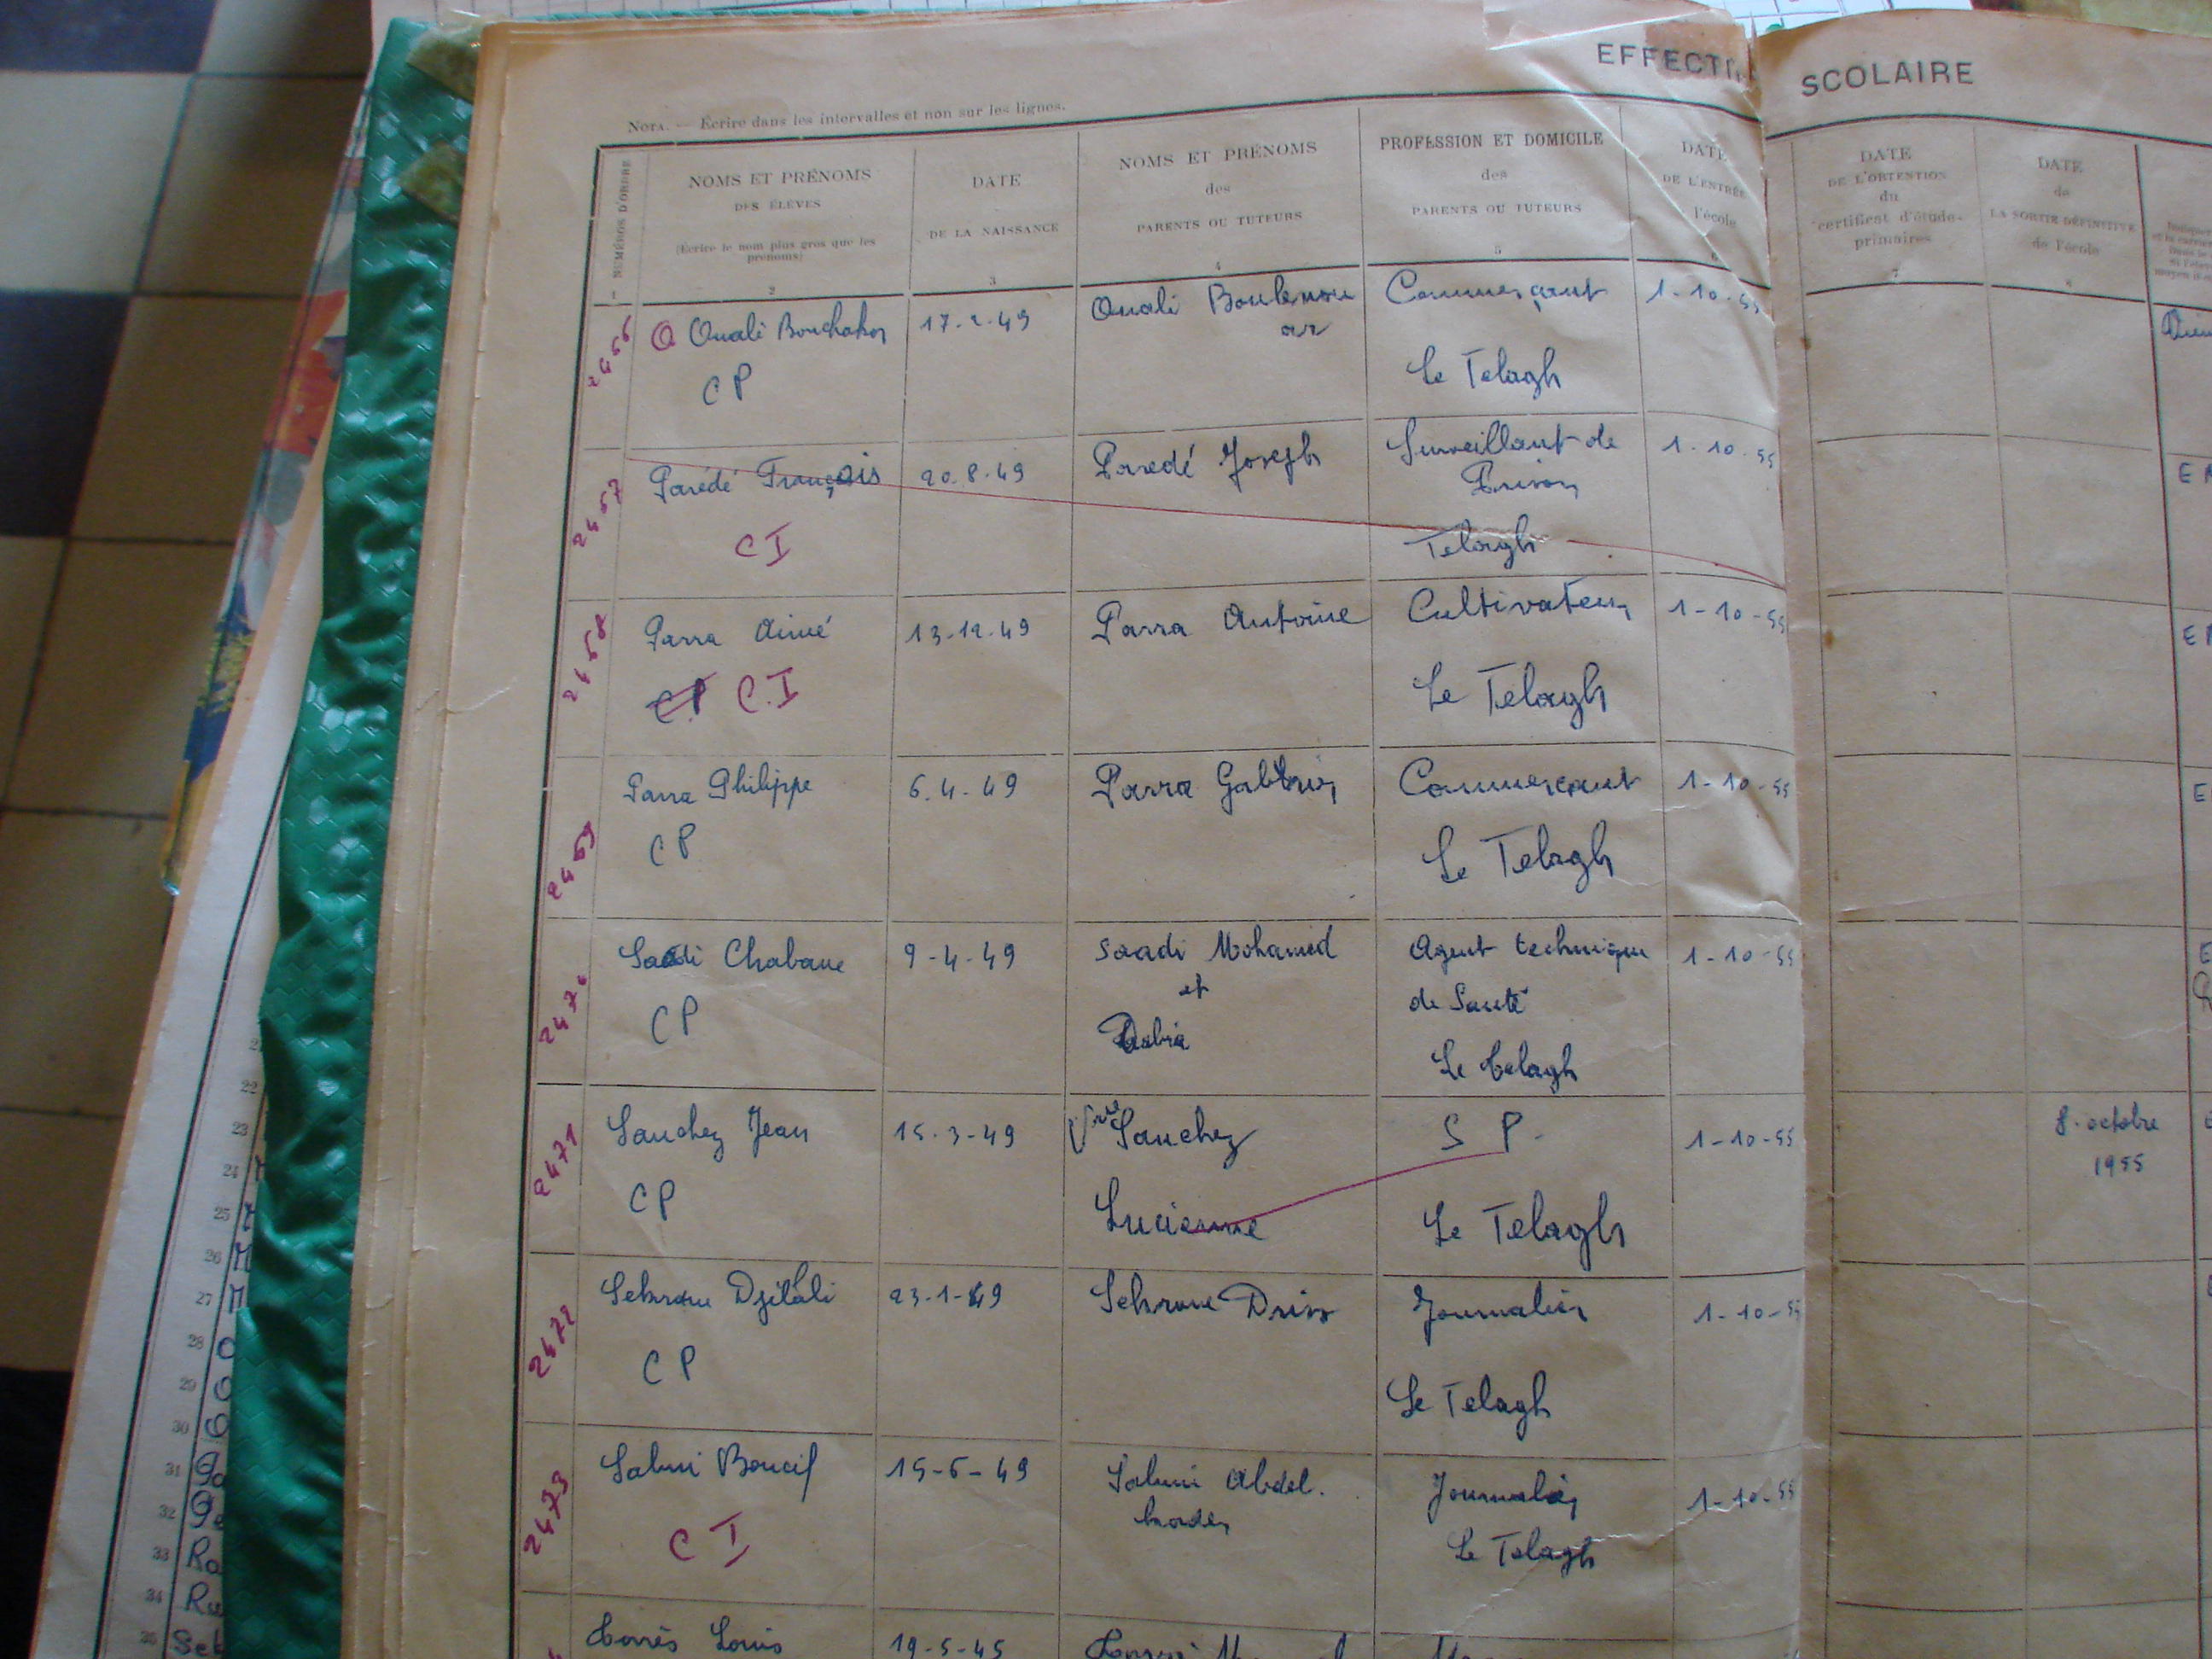 EFFECTI
SCOLAIRE
NOTA. — Écrire dans les intervalles et non sur les lignes.
NUMÉROS D'ORDRE
1
NOMS ET PRÉNOMS
DES ÉLÈVES
(Écrire le nom plus gros que les
prénoms)
2
DATE
DE LA NAISSANCE
3
NOMS ET PRÉNOMS
des
PARENTS OU TUTEURS
4
PROFESSION ET DOMICILE
des
PARENTS OU TUTEURS
5
DATE
DE L'ENTRÉE
l'école
6
DATE
DE L'OBTENTION
du
certificat d'étude-
primaires
7
DATE
de
LA SORTIE DÉFINITIVE
de l'école
8
2456
O Ouali Bouchakor
17-2-49
Ouali Boulenou
ar
Commerçant
1-10-55
CP
Le Telagh
2457
Parédé François
20.8.49
Paredé Joseph
Surveillant de
Prison
1-10-55
CI
Telagh
2458
Parra Aimé
13-12-49
Parra Antoine
Cultivateur
1-10-55
CP C.I
Le Télagh
2459
Parra Philippe
6.4.49
Parra Gabriel
Commerçant
1-10-55
CP
Le Telagh
2470
Saadi Chabane
9-4-49
Saadi Mohamed
et
Agent technique
de Santé
1-10-55
CP
Le telagh
2471
Sanchez Jean
15.3-49
Vve Sanchez
S P.
1-10-55
8.octobre
1955
CP
Lucienne
Le Telagh
2472
Sehraoui Djilali
23-1-49
Driss
Journalier
1-10-55
CP
Le Telagh
2473
Salmi Boucif
15-6-49
Salmi Abdel.
kader
Journalier
1-10-55
C I
Le Telagh
Louis
19-5-45
22
23
24
25
26
27
28
29
30
31
32
33
34
35
Ro
Ru
Seb